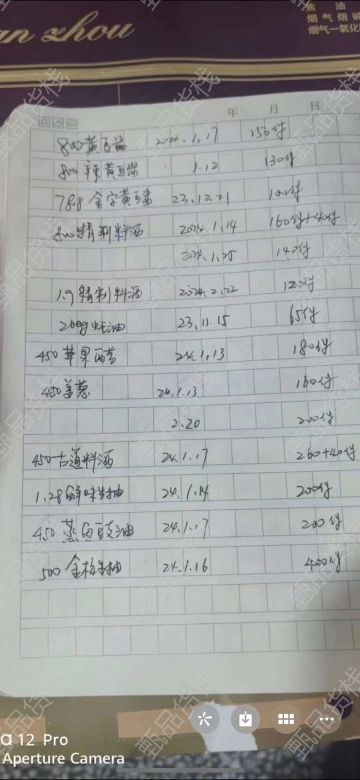 an zhou
焦 油
烟气烟碱
烟气一氧化
年 月 日
800黄豆酱 2024.1.17 150件
800辣黄豆酱 1.12 130件
788金字黄豆酱 23.12.21 100件
800精制料酒 2024.1.14 160件+40件
2024.1.25 140件
1.9精制料酒 2024.2.22 120件
260g蚝油 23.11.15 65件
450苹果西醋 24.1.13 180件
450姜葱 24.1.13 160件
2.20 200件
450古道料酒 24.1.17 260+40件
1.28鲜味生抽 24.1.14 200件
450蒸鱼豉油 24.1.17 200件
500金标生抽 24.1.16 400件
α12 Pro
Aperture Camera
甄品货栈